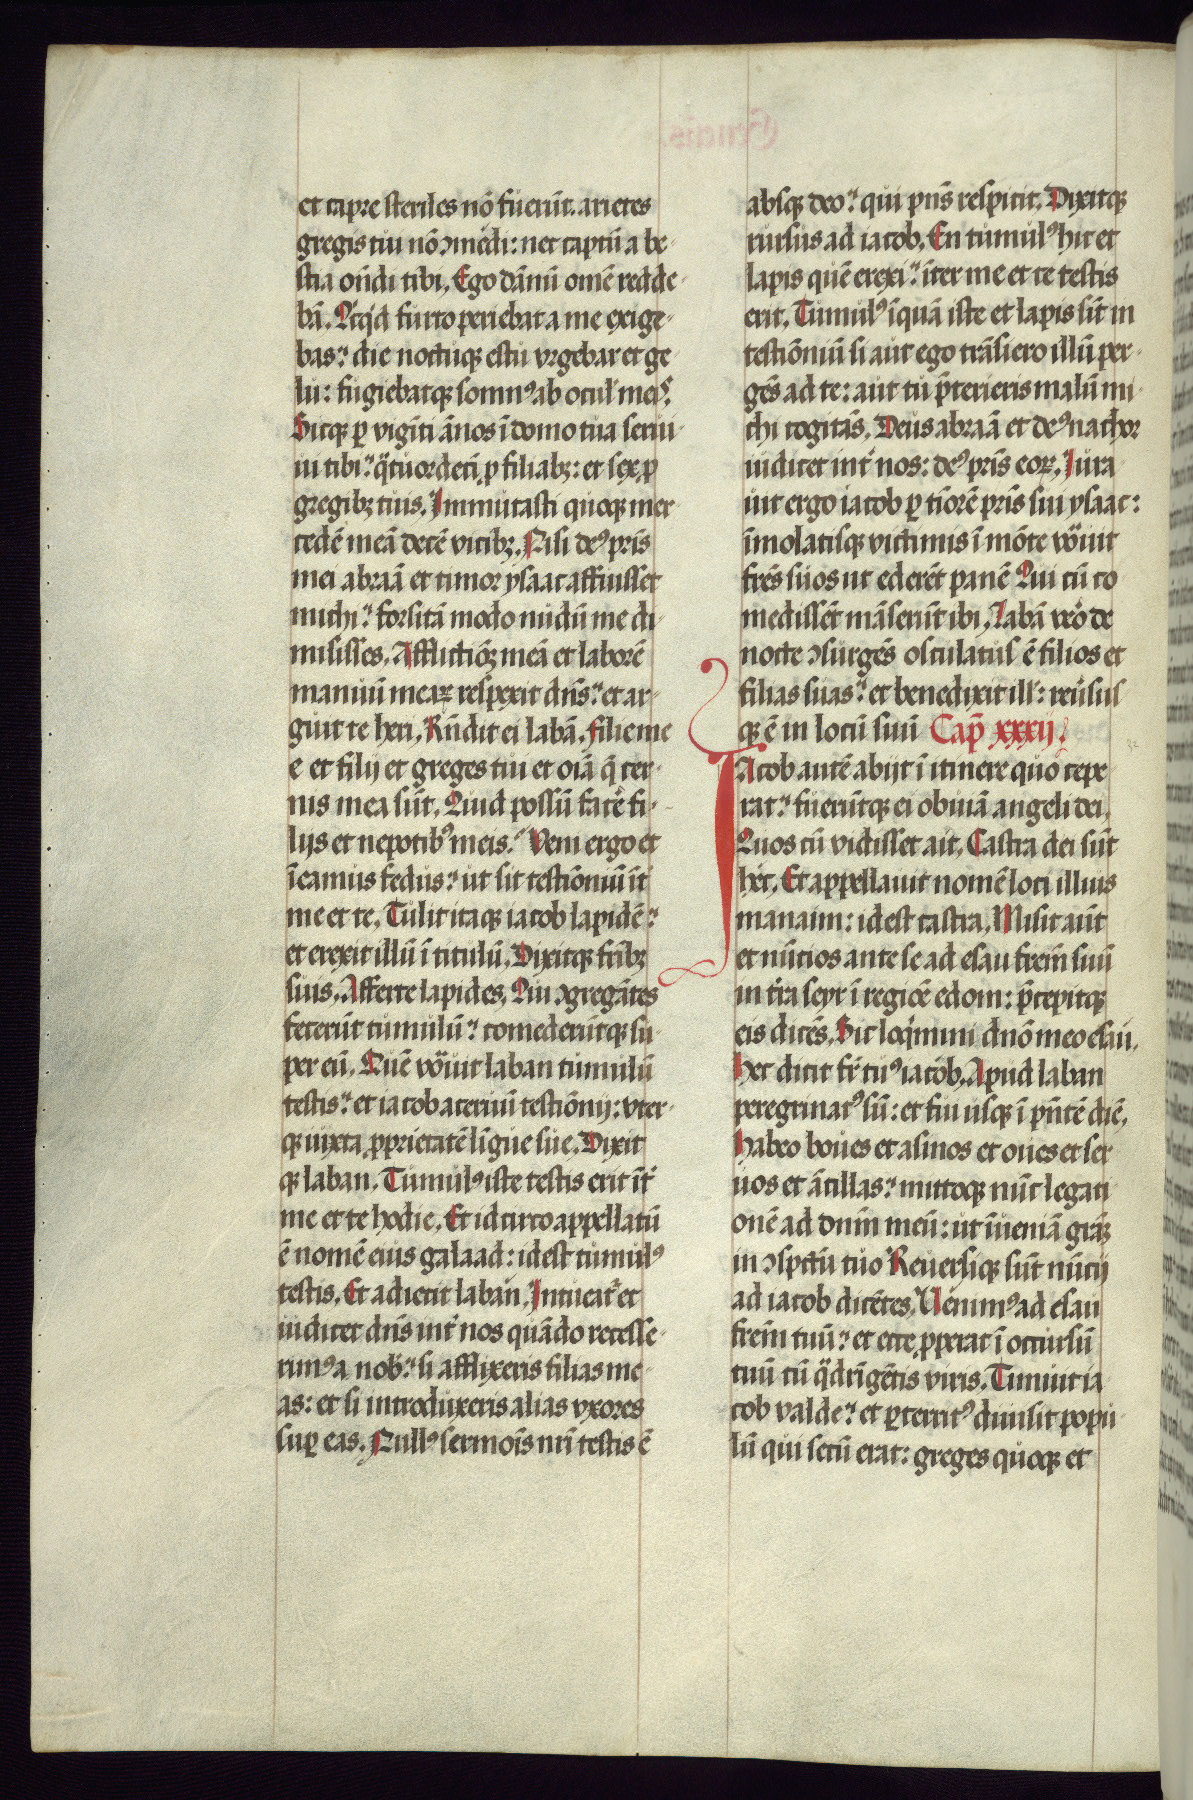 et capre steriles nō fuerūt. arietes
gregis tui nō ꝯmedi: nec captū a be-
stia oñdi tibi. Ego dāmū omē redde-
bā. Qͥcqͥd furto periebat a me exige-
bas: die noctuqꝫ estu vrgebar et ge
lu: fugiebatqꝫ somnꝰ ab ocul̄ meis.
Sicqꝫ ꝑ viginti ānos ī domo tua serui-
ui tibi: qͣtuordecī ꝓ filiabꝫ: et sex ꝓ
gregibꝫ tuis. Immutasti quoqꝫ mer
cedē meā decē vicibꝫ. Nisi deꝰ pr̄is
mei abraā et timor ysaac affuisset
michi: forsitā modo nudū me di-
misisses. Afflictiōꝫ meā et laborē
manuū meaꝝ respexit dn̄s: et ar-
guit te heri. Rn̄dit ei labā. Filie me
e et filij et greges tui et oīa q̄ cer-
nis mea sūt. Quid possū facē fi-
lijs et nepotibꝰ meis? Veni ergo et
īeamus fedus: ut sit testīoniū īt̄
me et te. Tulit itaqꝫ iacob lapidē:
et erexit illū ī titulū. Dixitqꝫ fr̄ibꝫ
suis. Afferte lapides. Qui ꝯgregātes
fecerūt tumulū: comederūtqꝫ su-
per eū. Quē vocͣuit laban tumulū
testis: et iacob aceruū testīonij: vter-
qꝫ iuxta ꝓprietatē līgue sue. Dixit
qꝫ laban. Tumulꝰ iste testis erit īt̄
me et te hodie. Et idcirco appellatū
ē nomē eius galaad: idest tumulꝰ
testis. Et adiecit laban. Intueat᷑ et
iudicet dn̄s int̄ nos quādo recesse-
rimꝰ a nobͥ: si afflixeris filias me-
as: et si introduxeris alias vxores
suꝑ eas. Nullꝰ sermoīs nr̄i testis ē
absqꝫ deo: qui pn̄s respicit. Dixitqꝫ
rursus ad iacob. En tumulꝰ hic et
lapis quē erexi: īter me et te testis
erit. Tumulꝰ īquā iste et lapis sīt in
testīoniū si aut ego trāsiero illū per-
gēs ad te: aut tu p̄terieris malū mi-
chi cogitās. Deus abraā et deꝰ nachor
iudicet int̄ nos: deꝰ pr̄is eoꝝ. Iura
uit ergo iacob ꝑ tīorē pr̄is sui ysaac:
īmolatisqꝫ victimis ī mōte vocͣuit
fr̄es suos ut ederēt panē Qui cū co
medissēt māserūt ibi. Labā vͦo de
nocte ꝯsurgēs osculatus ē filios et
filias suas: et benedixit ill̄: reūsus
qꝫ ē in locū suū Cap̄ xxxij.
Iacob autē abijt ī itinere quo cepe
rat: fuerūtqꝫ ei obuiā angeli dei.
Quos cū vidisset ait. Castra dei sūt
hec. Et appellauit nomē loci illius
manaim: idest castra. Misit aūt
et nūcios ante se ad esau frēm suū
in t̄ra seyr ī regiōē edom: p̄cepitqꝫ
eis dicēs. Sic loqͥmini dn̄o meo esau.
Hec dicit fr̄ tuꝰ iacob. Apud laban
peregrinatꝰ sū: et fui usqꝫ ī pn̄tē diē.
Habeo boues et asinos et oues et ser
uos et ācillas: mittoqꝫ nūc legati
onē ad dnm̄ meū: ut īueniā grāꝫ
in ꝯspctū tuo Reuersiqꝫ sūt nūcij
ad iacob dicētes. Venimꝰ ad esau
frēm tuū: et ecce ꝓperat ī occursū
tuū cū qͣdrīgētis viris. Timuit ia
cob valde: et ꝑterritꝰ diuisit popu-
lū qui secū erat: greges quoqꝫ et